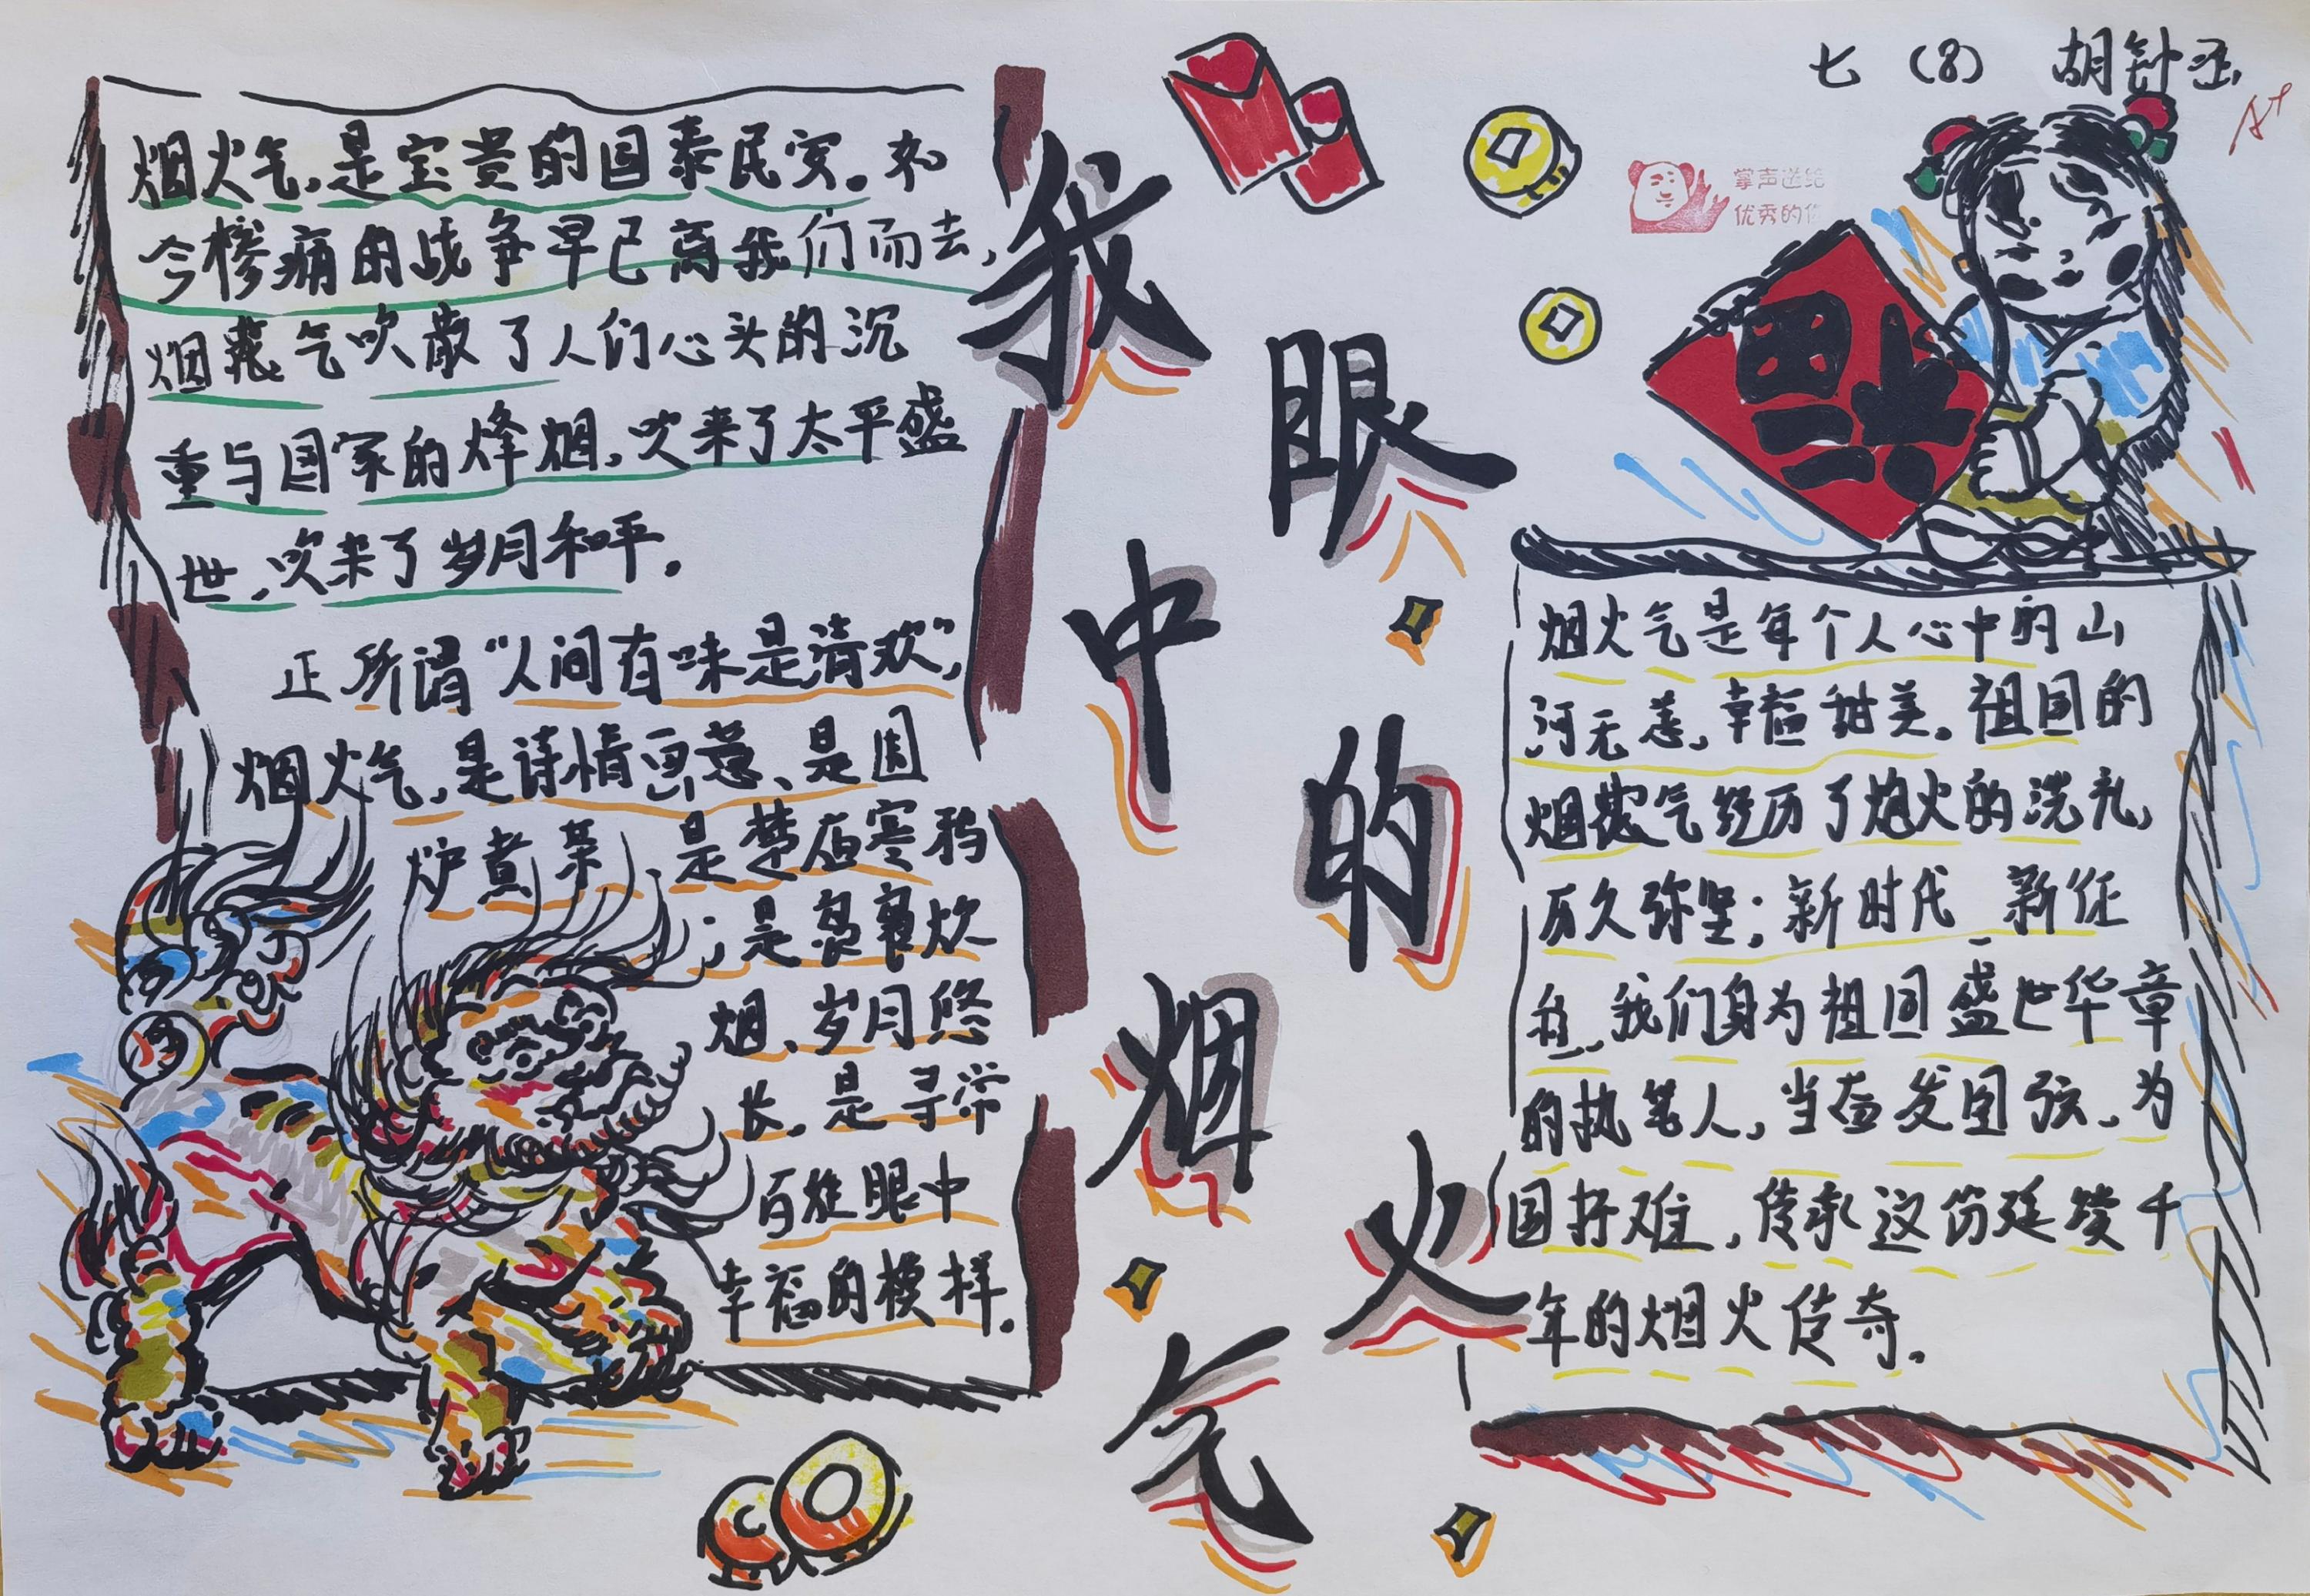 七（8） 胡
A+
掌声送给
优秀的
我眼中的烟火气
烟火气，是宝贵的国泰民安。如
今惨痛的战争早已离我们而去，
烟火气吹散了人们心头的沉
重与国家的烽烟，吹来了太平盛
世，吹来了岁月和平。
正所谓“人间有味是清欢”，
烟火气，是诗情画意、是围
炉煮茶，是楚店寒鸦
；是袅袅炊
烟、岁月悠
长，是寻常
百姓眼中
幸福的模样。
烟火气是每个人心中的山
河无恙，幸福甜美。祖国的
烟火气经历了炮火的洗礼，
历久弥坚；新时代 新征
程，我们身为祖国盛世华章
的执笔人，当奋发图强，为
国抒难，传承这份延续千
年的烟火传奇。
福